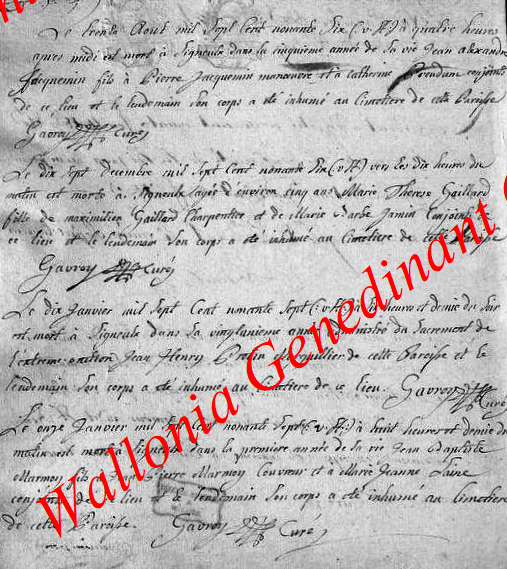 Le trente Aout mil Sept Cent nonante Six (v.st) à quatre heures
apres midi est mort à Signeulx dans la cinquieme année de sa vie Jean alexandre
Jacquemin fils à Pierre Jacquemin manœuvre et à catherine conjoints
de ce lieu et le lendemain Son corps a été inhumé au Cimetiere de cette Paroisse
Gavroy Curé
Le dix Sept decembre mil Sept Cent nonante Six (v.st) vers les dix heures du
matin est morte à Signeulx agée d'environ cinq ans Marie Therese Gaillard
fille de maximilien Gaillard Charpentier et de Marie Barbe Jamin Conjoints de
ce lieu et le lendemain Son corps a été inhumé au Cimetiere de cette Paroisse
Gavroy Curé
Le dix Janvier mil Sept Cent nonante Sept (v.st) à heures et demie du Soir
est mort à Signeulx dans sa vingtunieme année administré du Sacrement de
l'extreme onction Jean Henry marguillier de cette Paroisse et le
lendemain Son corps a été inhumé au Cimetiere de ce lieu. Gavroy
Curé
Le onze Janvier mil Sept Cent nonante Sept (v.st) à huit heures et demie du
matin est mort à Signeulx dans la premiere année de sa vie Jean Baptiste
Marmoy fils à Pierre Marmoy Couvreur et à Marie Jeanne
conjoints de ce lieu et le lendemain Son corps a été inhumé au Cimetiere
de cette Paroisse. Gavroy Curé
Wallonia Genedinant